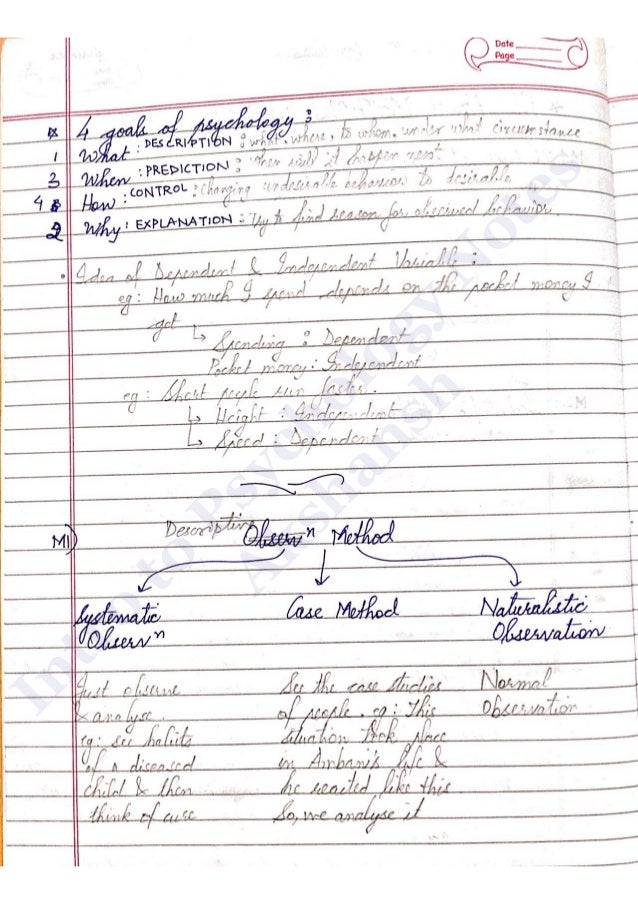 Date
Page
4 goals of psychology :
1 What : DESCRIPTION : what, where, to whom, under what circumstance
3 When : PREDICTION : When will it happen next
4 How : CONTROL : Changing undesirable behaviour to desirable
2 Why : EXPLANATION : Try to find reason for observed behavior
• Idea of Dependent & Independent Variable :
eg : How much I spend depends on the pocket money I
get
↳ Spending : Dependent
Pocket money : Independent
eg : Short people run faster.
↳ Height : Independent
↳ Speed : Dependent
M1) Descriptive Observⁿ Method
Systematic Observⁿ
Case Method
Naturalistic Observation
Just observe
& analyse.
eg: see habits
of a diseased
child & then
think of cure
See the case studies
of people. eg: This
situation took place
in Ambani's life &
he reacted like this
So, we analyse it
Normal
Observation
Intro to Psychology Notes
Akshansh